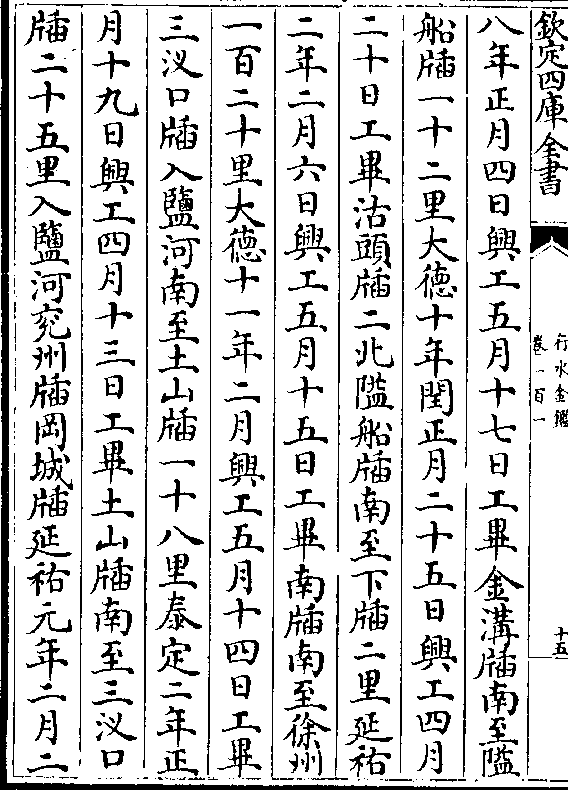 欽定四庫全書
行水金鑑
卷一百一
十五
八年正月四日興工五月十七日工畢金溝牐南至隘
船牐一十二里大德十年閏正月二十五日興工四月
二十日工畢沽頭牐二北隘船牐南至下牐二里延祐
二年二月六日興工五月十五日工畢南牐南至徐州
一百二十里大德十一年二月興工五月十四日工畢
三汊口牐入鹽河南至土山牐一十八里泰定二年正
月十九日興工四月十三日工畢土山牐南至三汊口
牐二十五里入鹽河兖州牐岡城牐延祐元年二月二